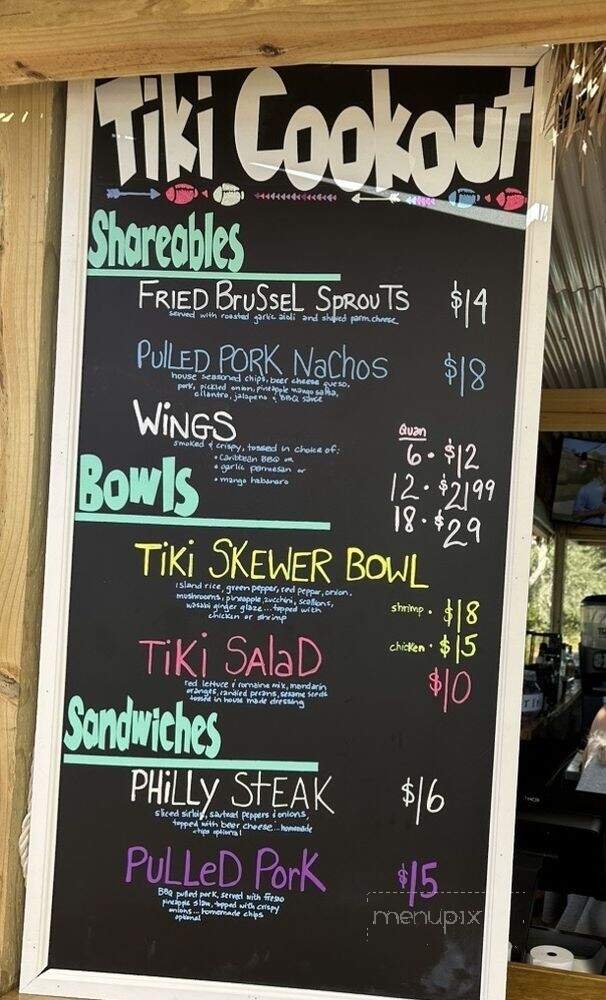 Tiki Cookout
Shareables
FRIED BRUSSEL SPROUTS $14
served with roasted garlic aioli and shaved parm.cheese
PULLED PORK NACHOS $18
house seasoned chips, beer cheese queso,
pork, pickled onion, pineapple mango salsa,
cilantro, jalapeno & BBQ sauce
WINGS
smoked & crispy, tossed in choice of:
• Caribbean BBQ or
• garlic parmesan or
• mango habanero
Quan
6 • $12
12 • $21.99
18 • $29
Bowls
TIKI SKEWER BOWL
island rice, green pepper, red pepper, onion,
mushrooms, pineapple, zucchini, scallions,
wasabi ginger glaze...topped with
chicken or shrimp
shrimp • $18
chicken • $15
TIKI SALAD $10
red lettuce & romaine mix, mandarin
oranges, candied pecans, sesame seeds
tossed in house made dressing
Sandwiches
PHILLY STEAK $16
sliced sirloin, sauteed peppers & onions,
topped with beer cheese...homemade
chips optional
PULLED PORK $15
BBQ pulled pork, served with fresno
pineapple slaw, topped with crispy
onions... homemade chips
optional
menupix